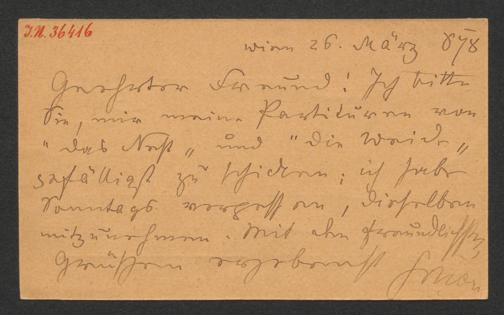 I.N. 36416
Wien 26. März 878
Geehrter Freund! Ich bitte
Sie, mir meine Partituren von
"das Nest" und "die Weide"
gefälligst zu schicken; ich habe
Sonntags vergessen, dieselben
mitzunehmen. Mit den freundlichsten
Grüßen ergebenst